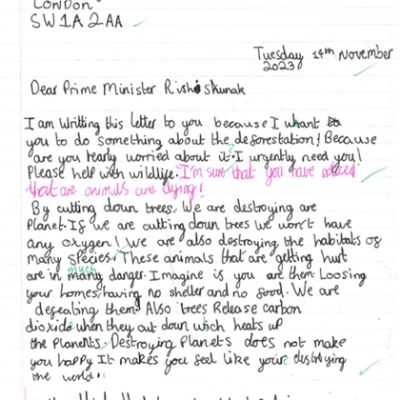 London
SW1A 2AA
Tuesday 14th November
2023
Dear Prime Minister Rishi Skunak
I am Writting this letter to you because I whant to
you to do something about the deforestation! Because
are you rearly worried about it. I urgently need you!
Please help with wildlife. I'm sure that you have noticed
that are animals are dying!
By cutting down trees, We are destroying are
Planet. If we are cutting down trees we won't have
any oxygen! We are also destroying the habitats of
many species. These animals that are getting hurt
are in much many danger. Imagine is you are them Loosing
your homes, having no shelter and no food. We are
defeating them. Also trees Release carbon
dioxide when they cut down wich heats up
the Planets. Destroying Planets does not make
you happy It makes you feel like your destroying
the world.